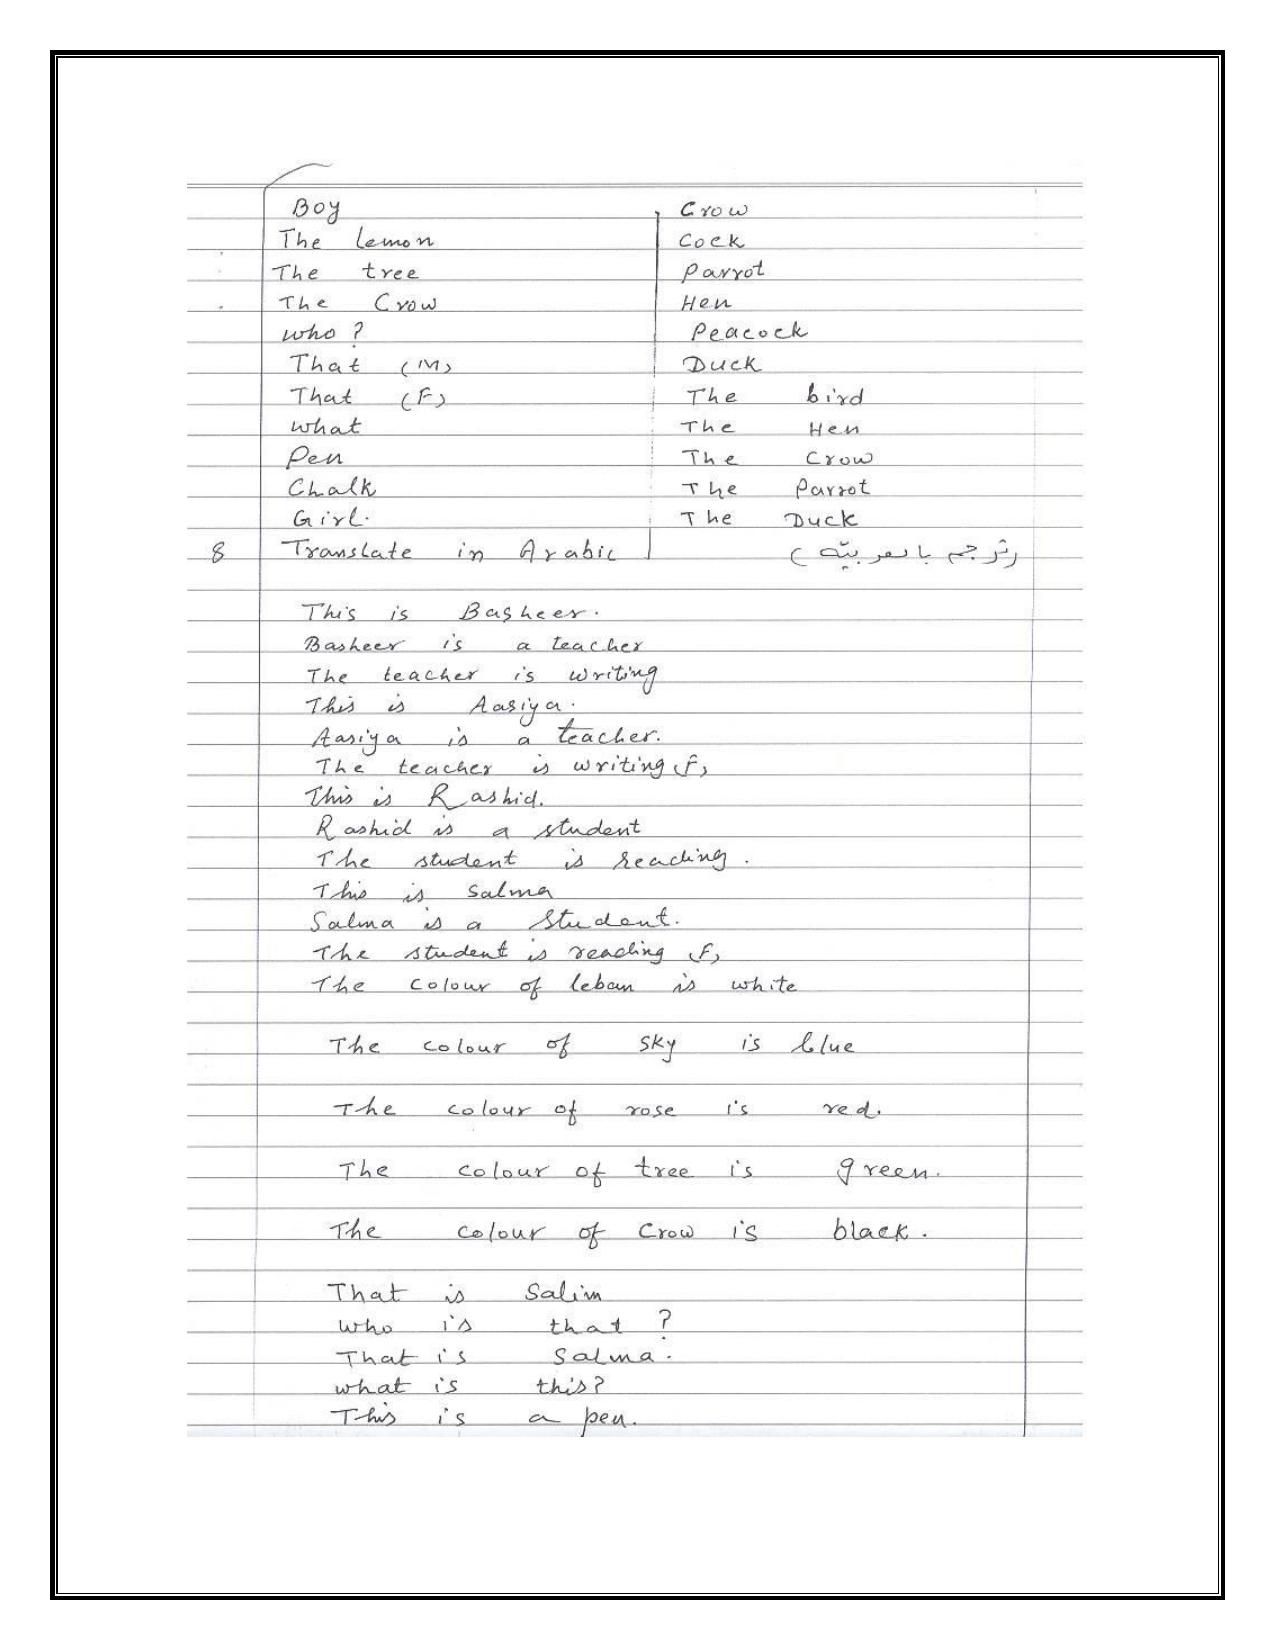 Boy
The lemon
The tree
The Crow
who ?
That (M)
That (F)
what
Pen
Chalk
Girl.
Crow
Cock
Parrot
Hen
Peacock
Duck
The bird
The Hen
The Crow
The Parrot
The Duck
8 Translate in Arabic (ترجم بالعربيّة)
This is Basheer.
Basheer is a teacher
The teacher is writing
This is Aasiya.
Aasiya is a teacher.
The teacher is writing (F)
This is Rashid.
Rashid is a student
The student is reading.
This is Salma
Salma is a student.
The student is reading (F)
The colour of leban is white
The colour of sky is blue
The colour of rose is red.
The colour of tree is green.
The colour of Crow is black.
That is Salim
who is that ?
That is Salma.
what is this?
This is a pen.